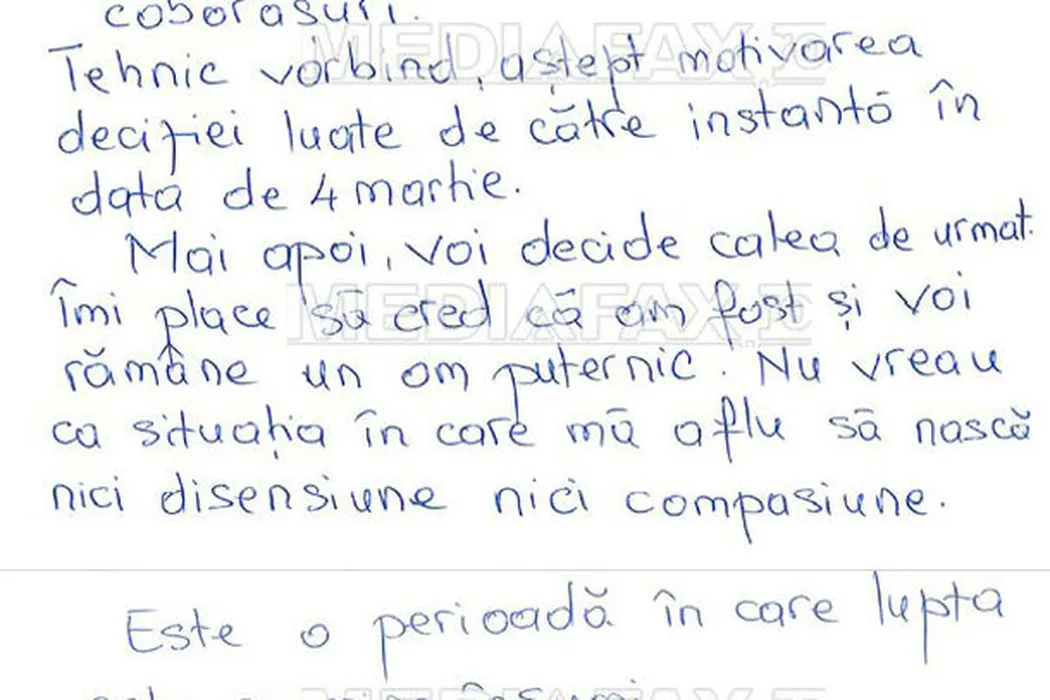 coborasuri.
Tehnic vorbind, aștept motivarea
deciziei luate de către instantă în
data de 4 martie.
Mai apoi, voi decide calea de urmat.
Îmi place să cred că am fost și voi
rămâne un om puternic. Nu vreau
ca situația în care mă aflu să nască
nici disensiune nici compasiune.
Este o perioadă în care lupta
MEDIAFAX
MEDIAFAX